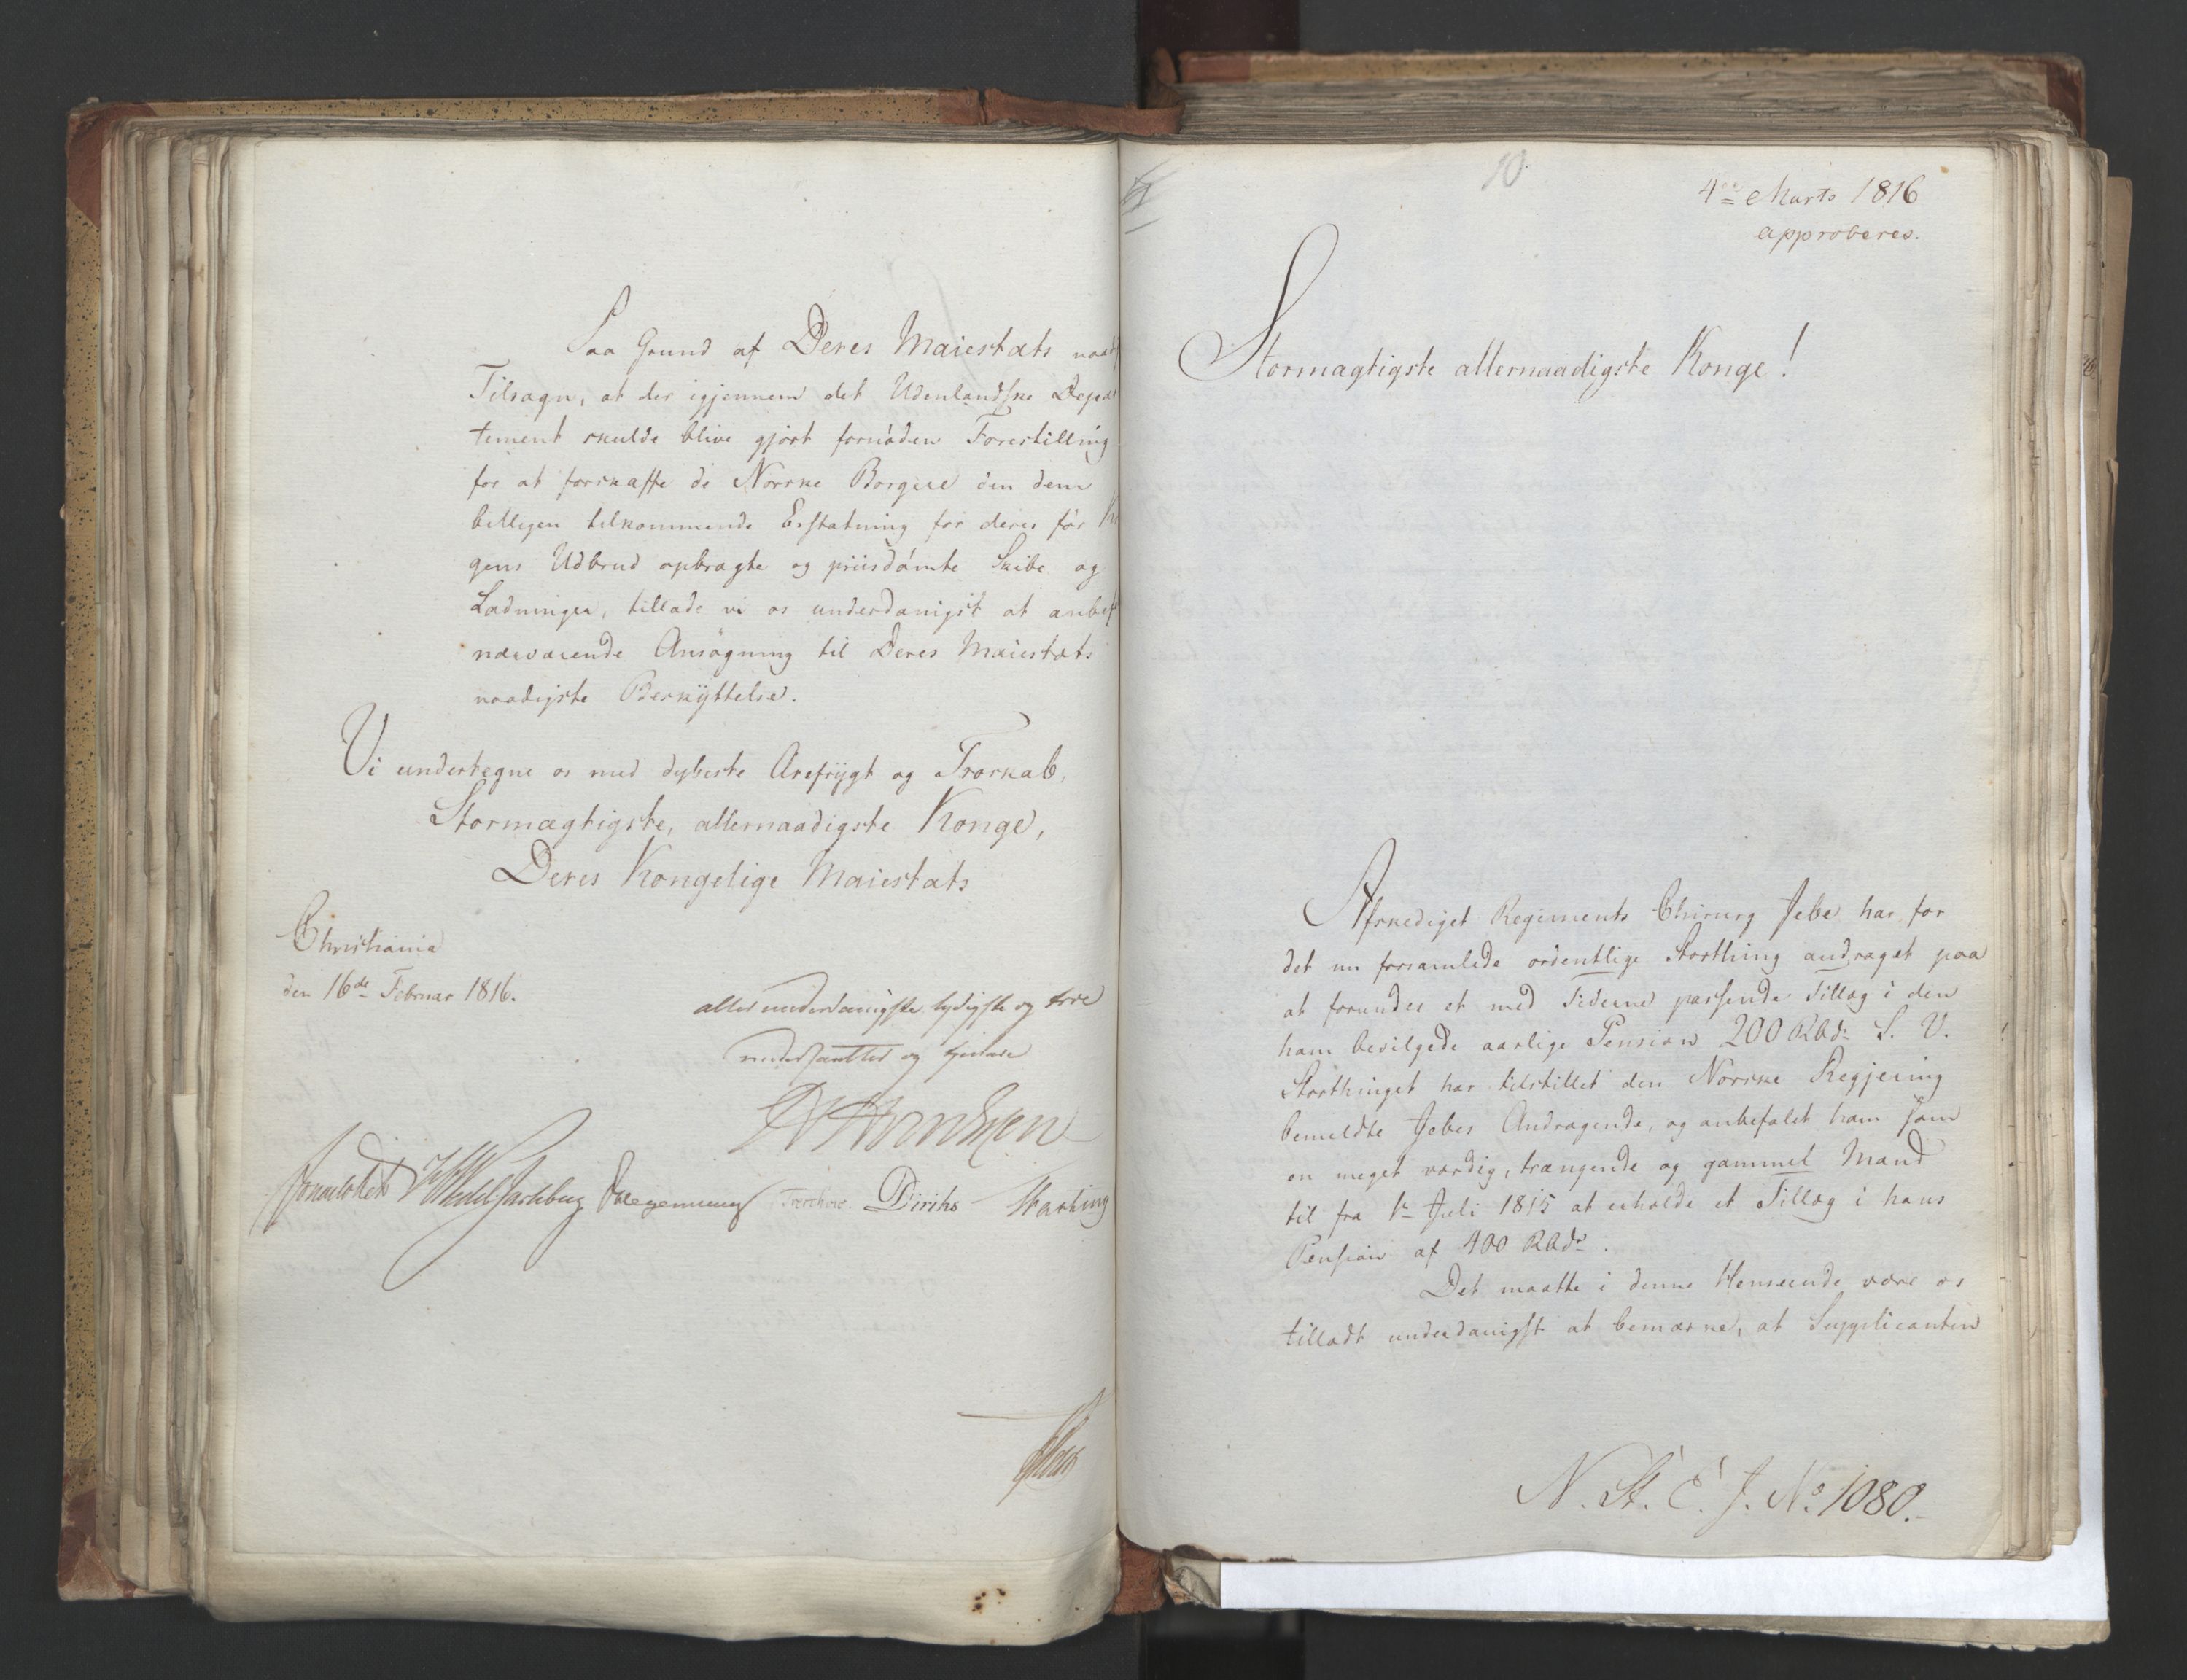 Paa Grund af Deres Maiestæts naad
Tilsagn, at der igjennem det Udenlandske Depar
tement skulde blive gjort fornöden Forestilling
for at forskaffe de Norske Borgere den dem
billigen tilkommende Erstatning for deres för Kri
gens Udbrud opbragte og priisdömte Skibe og
Ladninger, tillade vi os underdanigst at anbef
nærværende Ansögning til Deres Maiestæts
naadigste Beskyttelse.
Vi undertegne os med dybeste Ærefrygt og Troskab,
Stormægtigste, allernaadigste Konge,
Deres Kongelige Maiestæts
Christiania
den 16de Februar 1816.
allerunderdanigste lydigste og troe
undersaatter og tjenere
Sommerhielm HWedel Jarlsberg Hegermann Treschow Diriks Motzfeldt
10.
4de Marts 1816
approberes.
Stormægtigste allernaadigste Konge!
Afskediget Regiments Chirurg Jebe har for
det nu forsamlede ordentlige Storthing andraget paa
at forundes et med Tiderne passende Tillæg i den
ham bevilgede aarlige Pension 200 Rbdr S. V.
Storthinget har tilstillet den Norske Regjering
bemeldte Jebes Andragende, og anbefalet ham som
en meget værdig, trængende og gammel Mand
til fra 1te Juli 1815 at erholde et Tillæg i hans
Pension af 400 Rbdr.
Det maatte i denne Henseende være os
tilladt underdanigst at bemærke, at Supplicanten
N. St. E. J. No 1080.